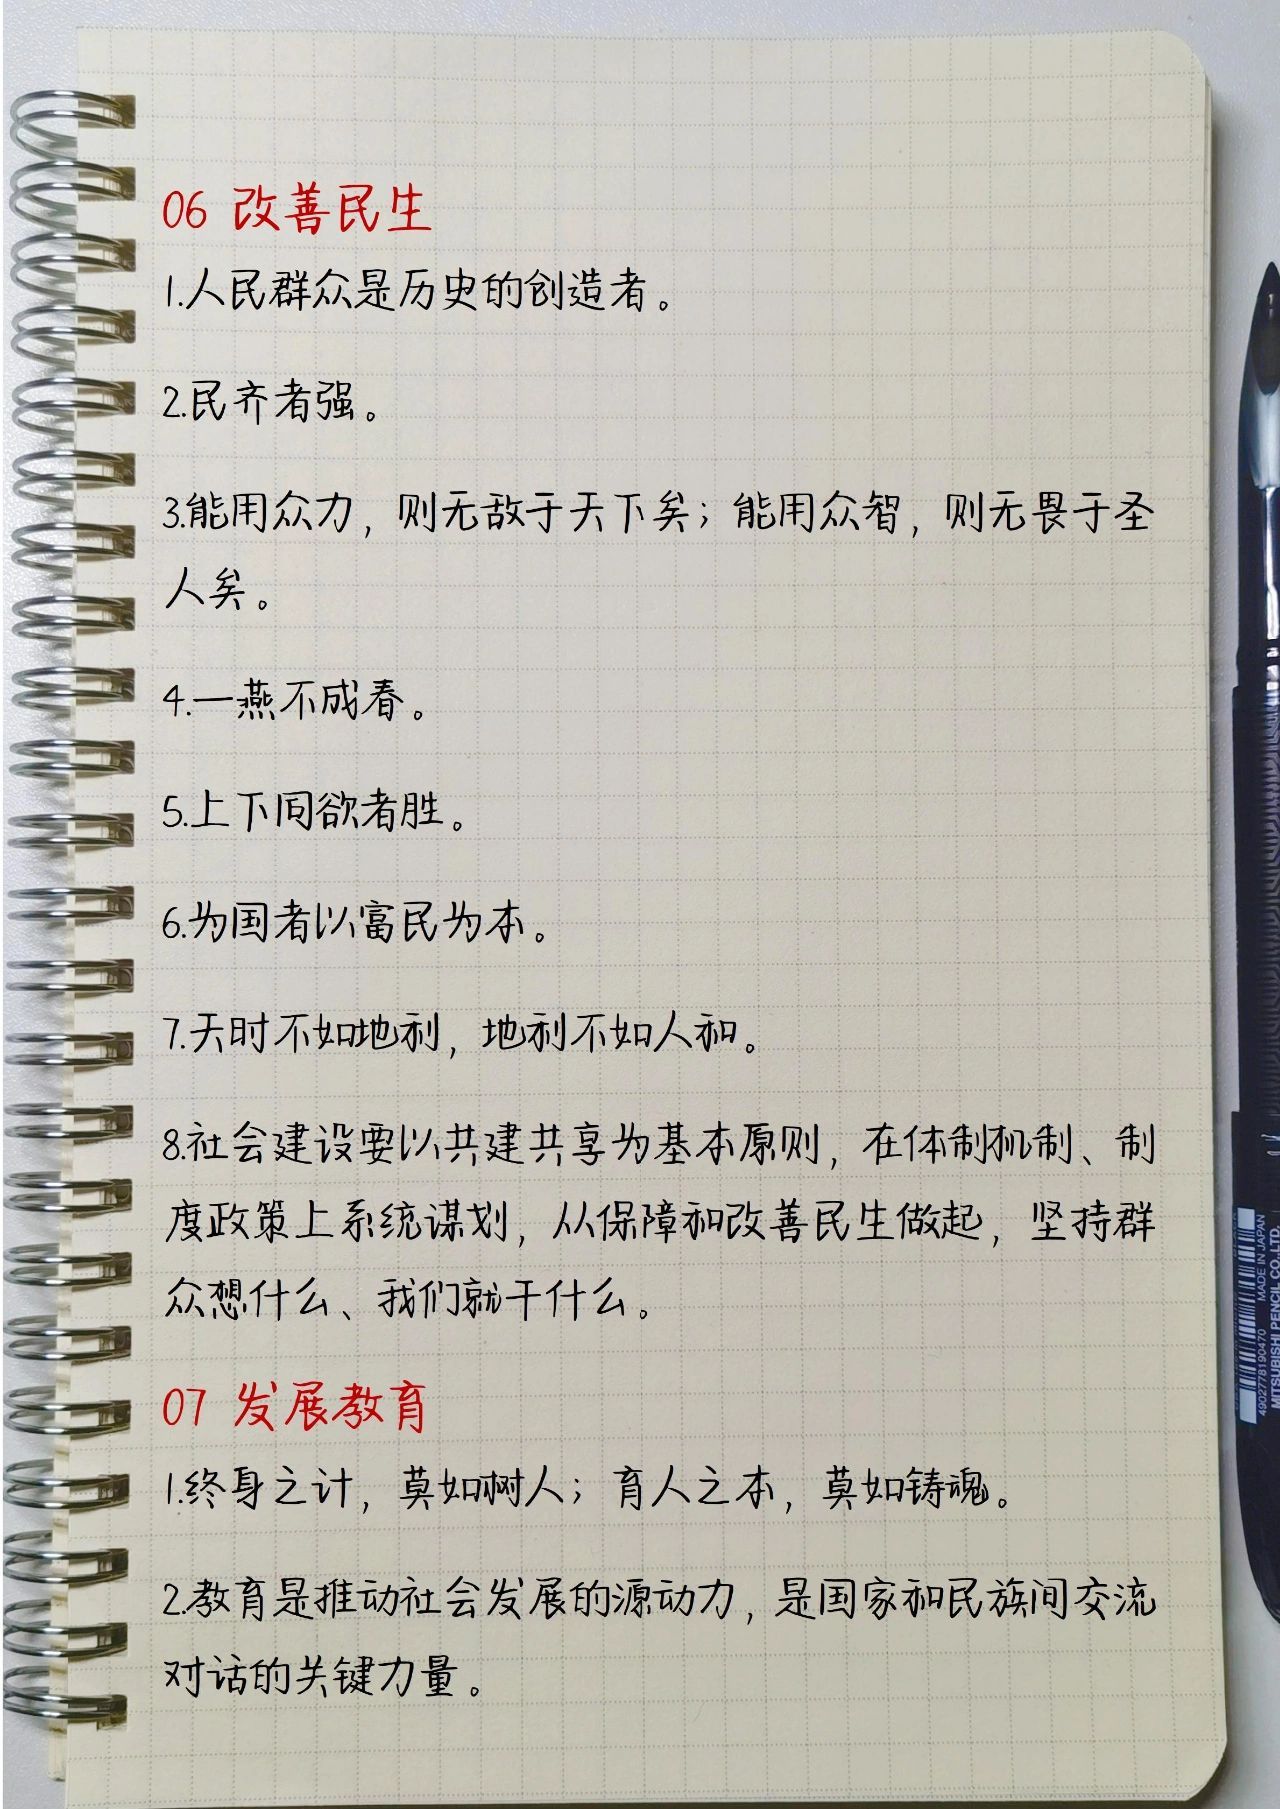 06 改善民生
1.人民群众是历史的创造者。
2.民齐者强。
3.能用众力，则无敌于天下矣；能用众智，则无畏于圣
人矣。
4.一燕不成春。
5.上下同欲者胜。
6.为国者以富民为本。
7.天时不如地利，地利不如人和。
8.社会建设要以共建共享为基本原则，在体制机制、制
度政策上系统谋划，从保障和改善民生做起，坚持群
众想什么、我们就干什么。
07 发展教育
1.终身之计，莫如树人；育人之本，莫如铸魂。
2.教育是推动社会发展的源动力，是国家和民族间交流
对话的关键力量。
4902778190470 MADE IN JAPAN
MITSUBISHI PENCIL CO.,LTD.